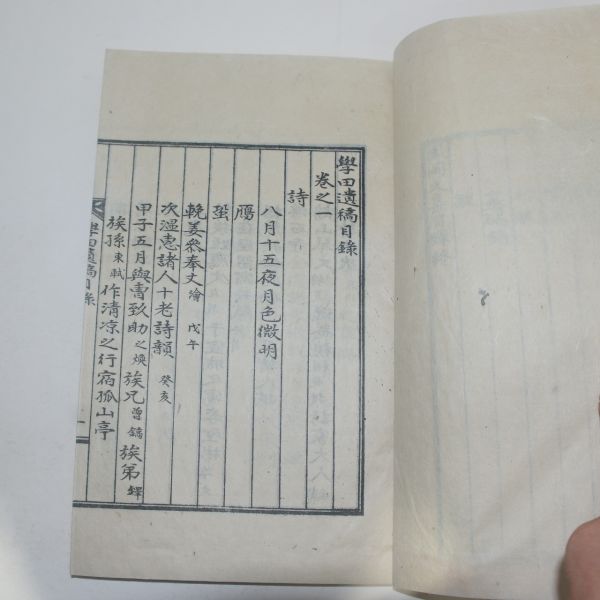 學田遺稿目錄
卷之一
詩
八月十五夜月色微明
鴈
蛩
輓姜參奉丈 淪 戊午
次溫惠諸人十老詩韻 癸亥
甲子五月與 致助 之煥 族兄 曾鎬 族弟 鐸
族孫 東軾 作清凉之行宿孤山亭
學田遺稿目錄
一